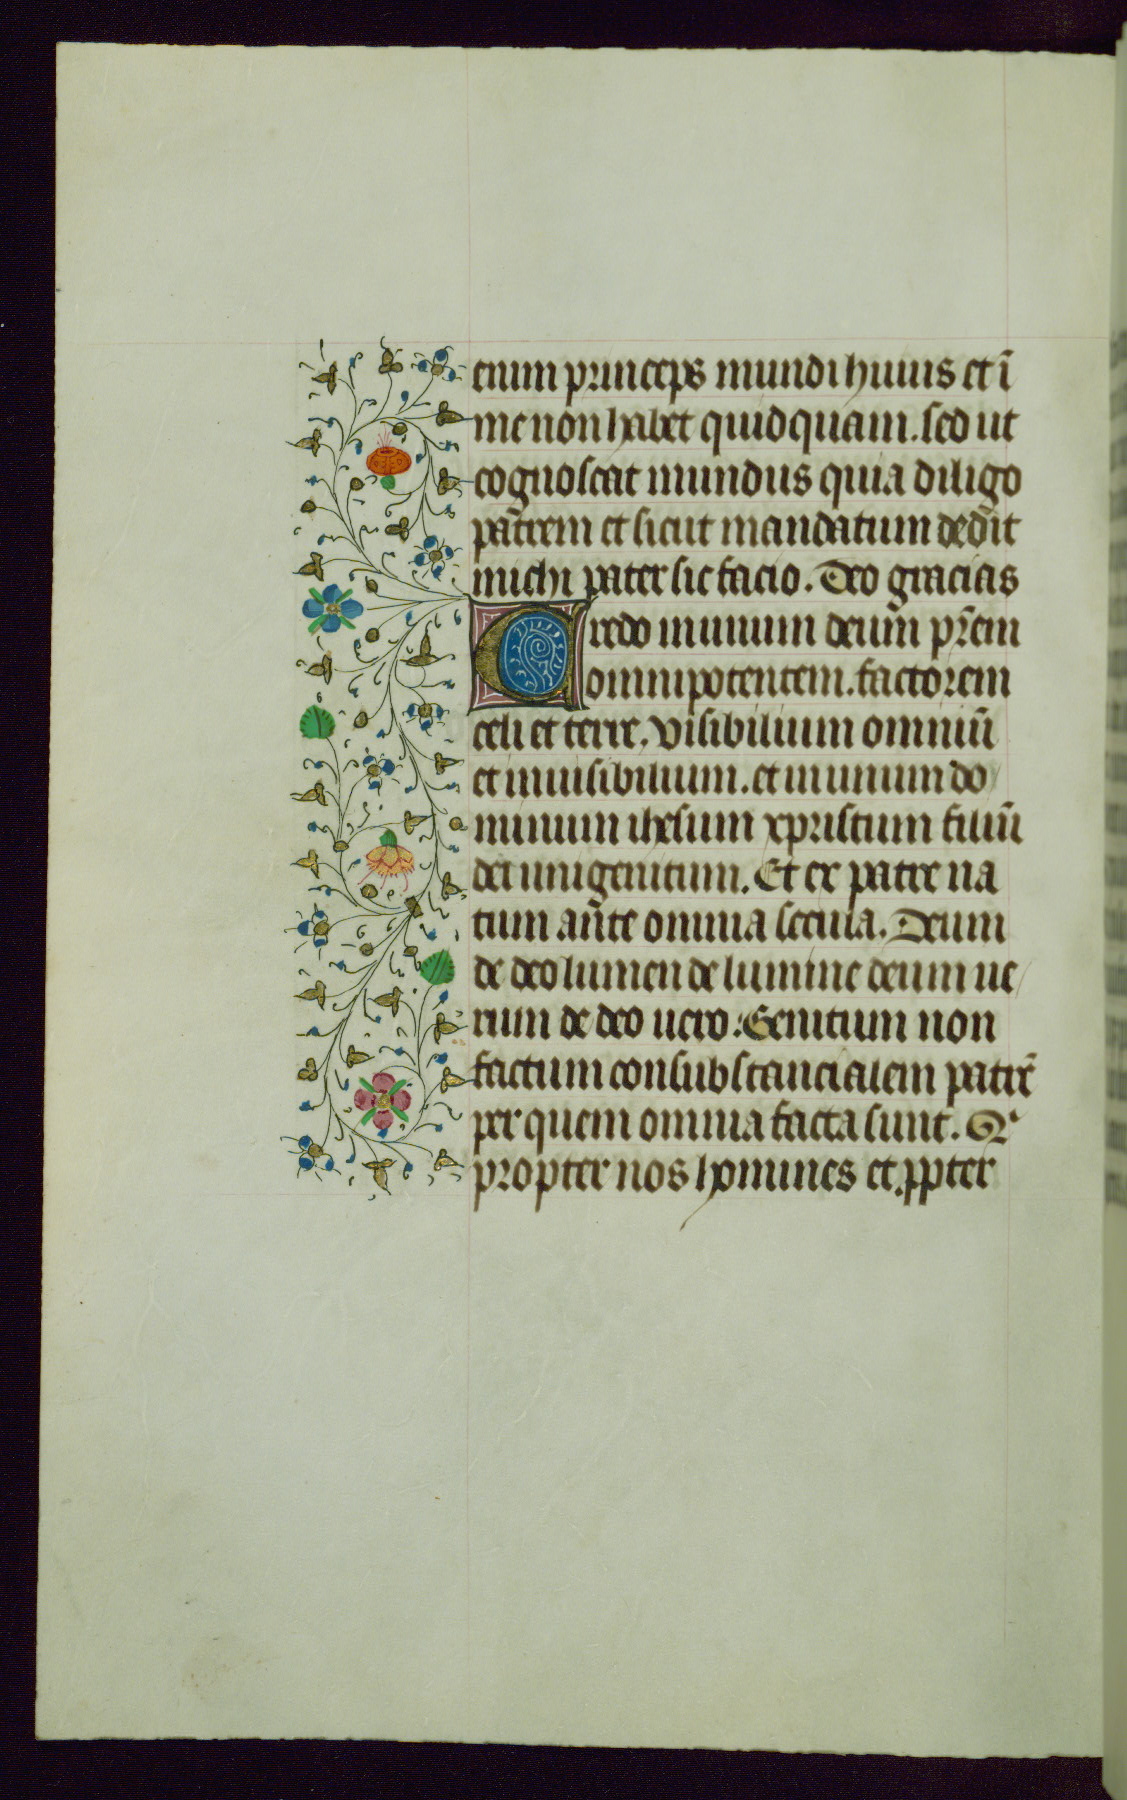 enim princeps mundi huius et ī
me non habet quidquam. sed ut
cognoscat mundus quia diligo
patrem et sicut mandatum dedit
michi pater sic facio. Deo gracias
Credo in unum deum pr̄em
omnipotentem. factorem
celi et terre. visibilium omniū
et inuisibilium. et in unum do
minum ihesum xpristum filiū
dei unigenitum. Et ex patre na
tum ante omnia secula. Deum
de deo lumen de lumine deum ue
rum de deo uero. Genitum non
factum consubstancialem patrē
per quem omnia facta sunt. Qⁱ
propter nos homines et ꝓpter